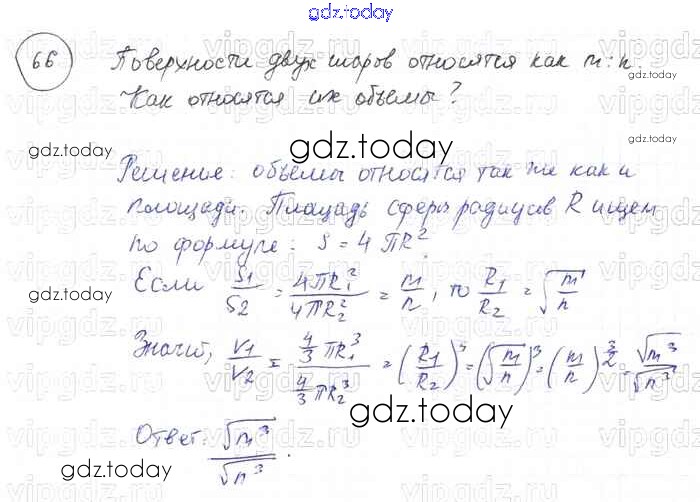 gdz.today
66
Поверхности двух шаров относятся как m:n.
Как относятся их объёмы?
gdz.today
gdz.today
gdz.today
Решение: объёмы относятся так же как и
площади. Площадь сферы радиусов R ищем
по формуле: S = 4πR²
Если S₁/S₂ = 4πR₁²/4πR₂² = m/n, то R₁/R₂ = √(m/n)
gdz.today
gdz.today
Значит, V₁/V₂ = (4/3 πR₁³)/(4/3 πR₂³) = (R₁/R₂)³ = (√(m/n))³ = (m/n)^(3/2) = √m³/√n³
gdz.today
Ответ: √m³/√n³.
gdz.today
gdz.today
vipgdz.ru